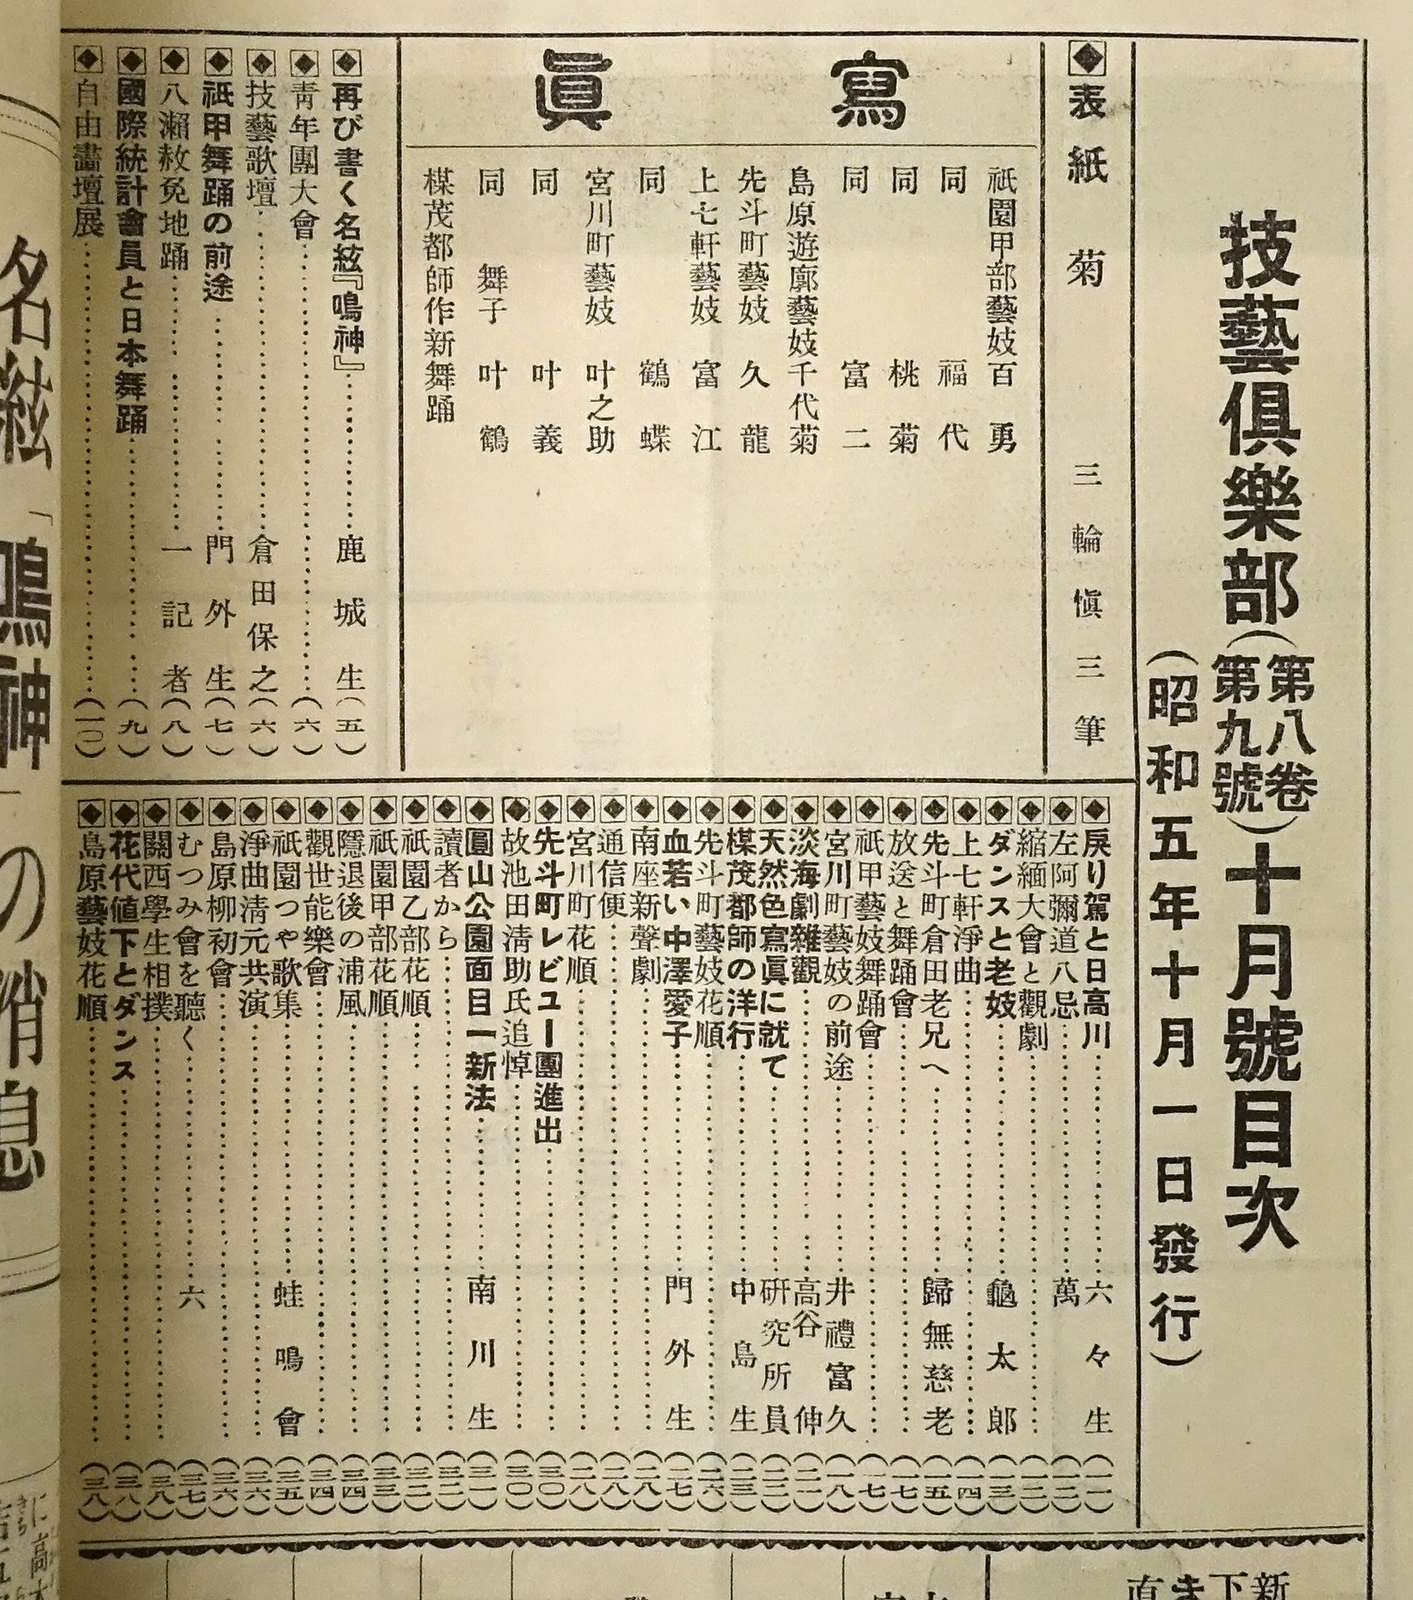 技藝倶樂部(第八卷第九號)十月號目次
(昭和五年十月一日發行)
表紙 菊 三輪愼三筆
寫眞
祇園甲部藝妓 百勇
同 福代
同 桃菊
同 富二
島原遊廓藝妓 千代菊
先斗町藝妓 久龍
上七軒藝妓 富江
同 鶴蝶
宮川町藝妓 叶之助
同 叶義
同 舞子 叶鶴
楳茂都師作新舞踊
再び書く名絃『鳴神』 鹿城生(五)
青年團大會(六)
技藝歌壇 倉田保之(六)
祇甲舞踊の前途 門外生(七)
八瀬赦免地踊 一記者(八)
國際統計會員と日本舞踊(九)
自由畵壇展(一〇)
戻り駕と日高川 六々生(一一)
左阿彌道八忌 萬(一二)
縮緬大會と觀劇(一二)
ダンスと老妓 龜太郎(一三)
上七軒淨曲(一四)
先斗町倉田老兄へ 歸無慈老(一五)
放送と舞踊會(一七)
祇甲藝妓舞踊會(一七)
宮川町藝妓の前途 井禮富久(一八)
淡海劇雜觀 高谷伸(二一)
天然色寫眞に就て 研究所員(二二)
楳茂都師の洋行 中島生(二三)
先斗町藝妓花順(二六)
血若い中澤愛子 門外生(二七)
南座新聲劇(二八)
通信便(二八)
宮川町花順(二八)
先斗町レビユー團進出(三〇)
故池田清助氏追悼(三〇)
圓山公園面目一新法 南川生(三一)
讀者から(三二)
祇園乙部花順(三二)
祇園甲部花順(三三)
隱退後の浦風(三四)
觀世能樂會(三四)
祇園つや歌集 蛙鳴會(三五)
淨曲清元共演(三六)
島原柳初會(三六)
むつみ會を聽く 六(三七)
關西學生相撲(三八)
花代値下とダンス(三八)
島原藝妓花順(三八)
名絃「鳴神」の消息